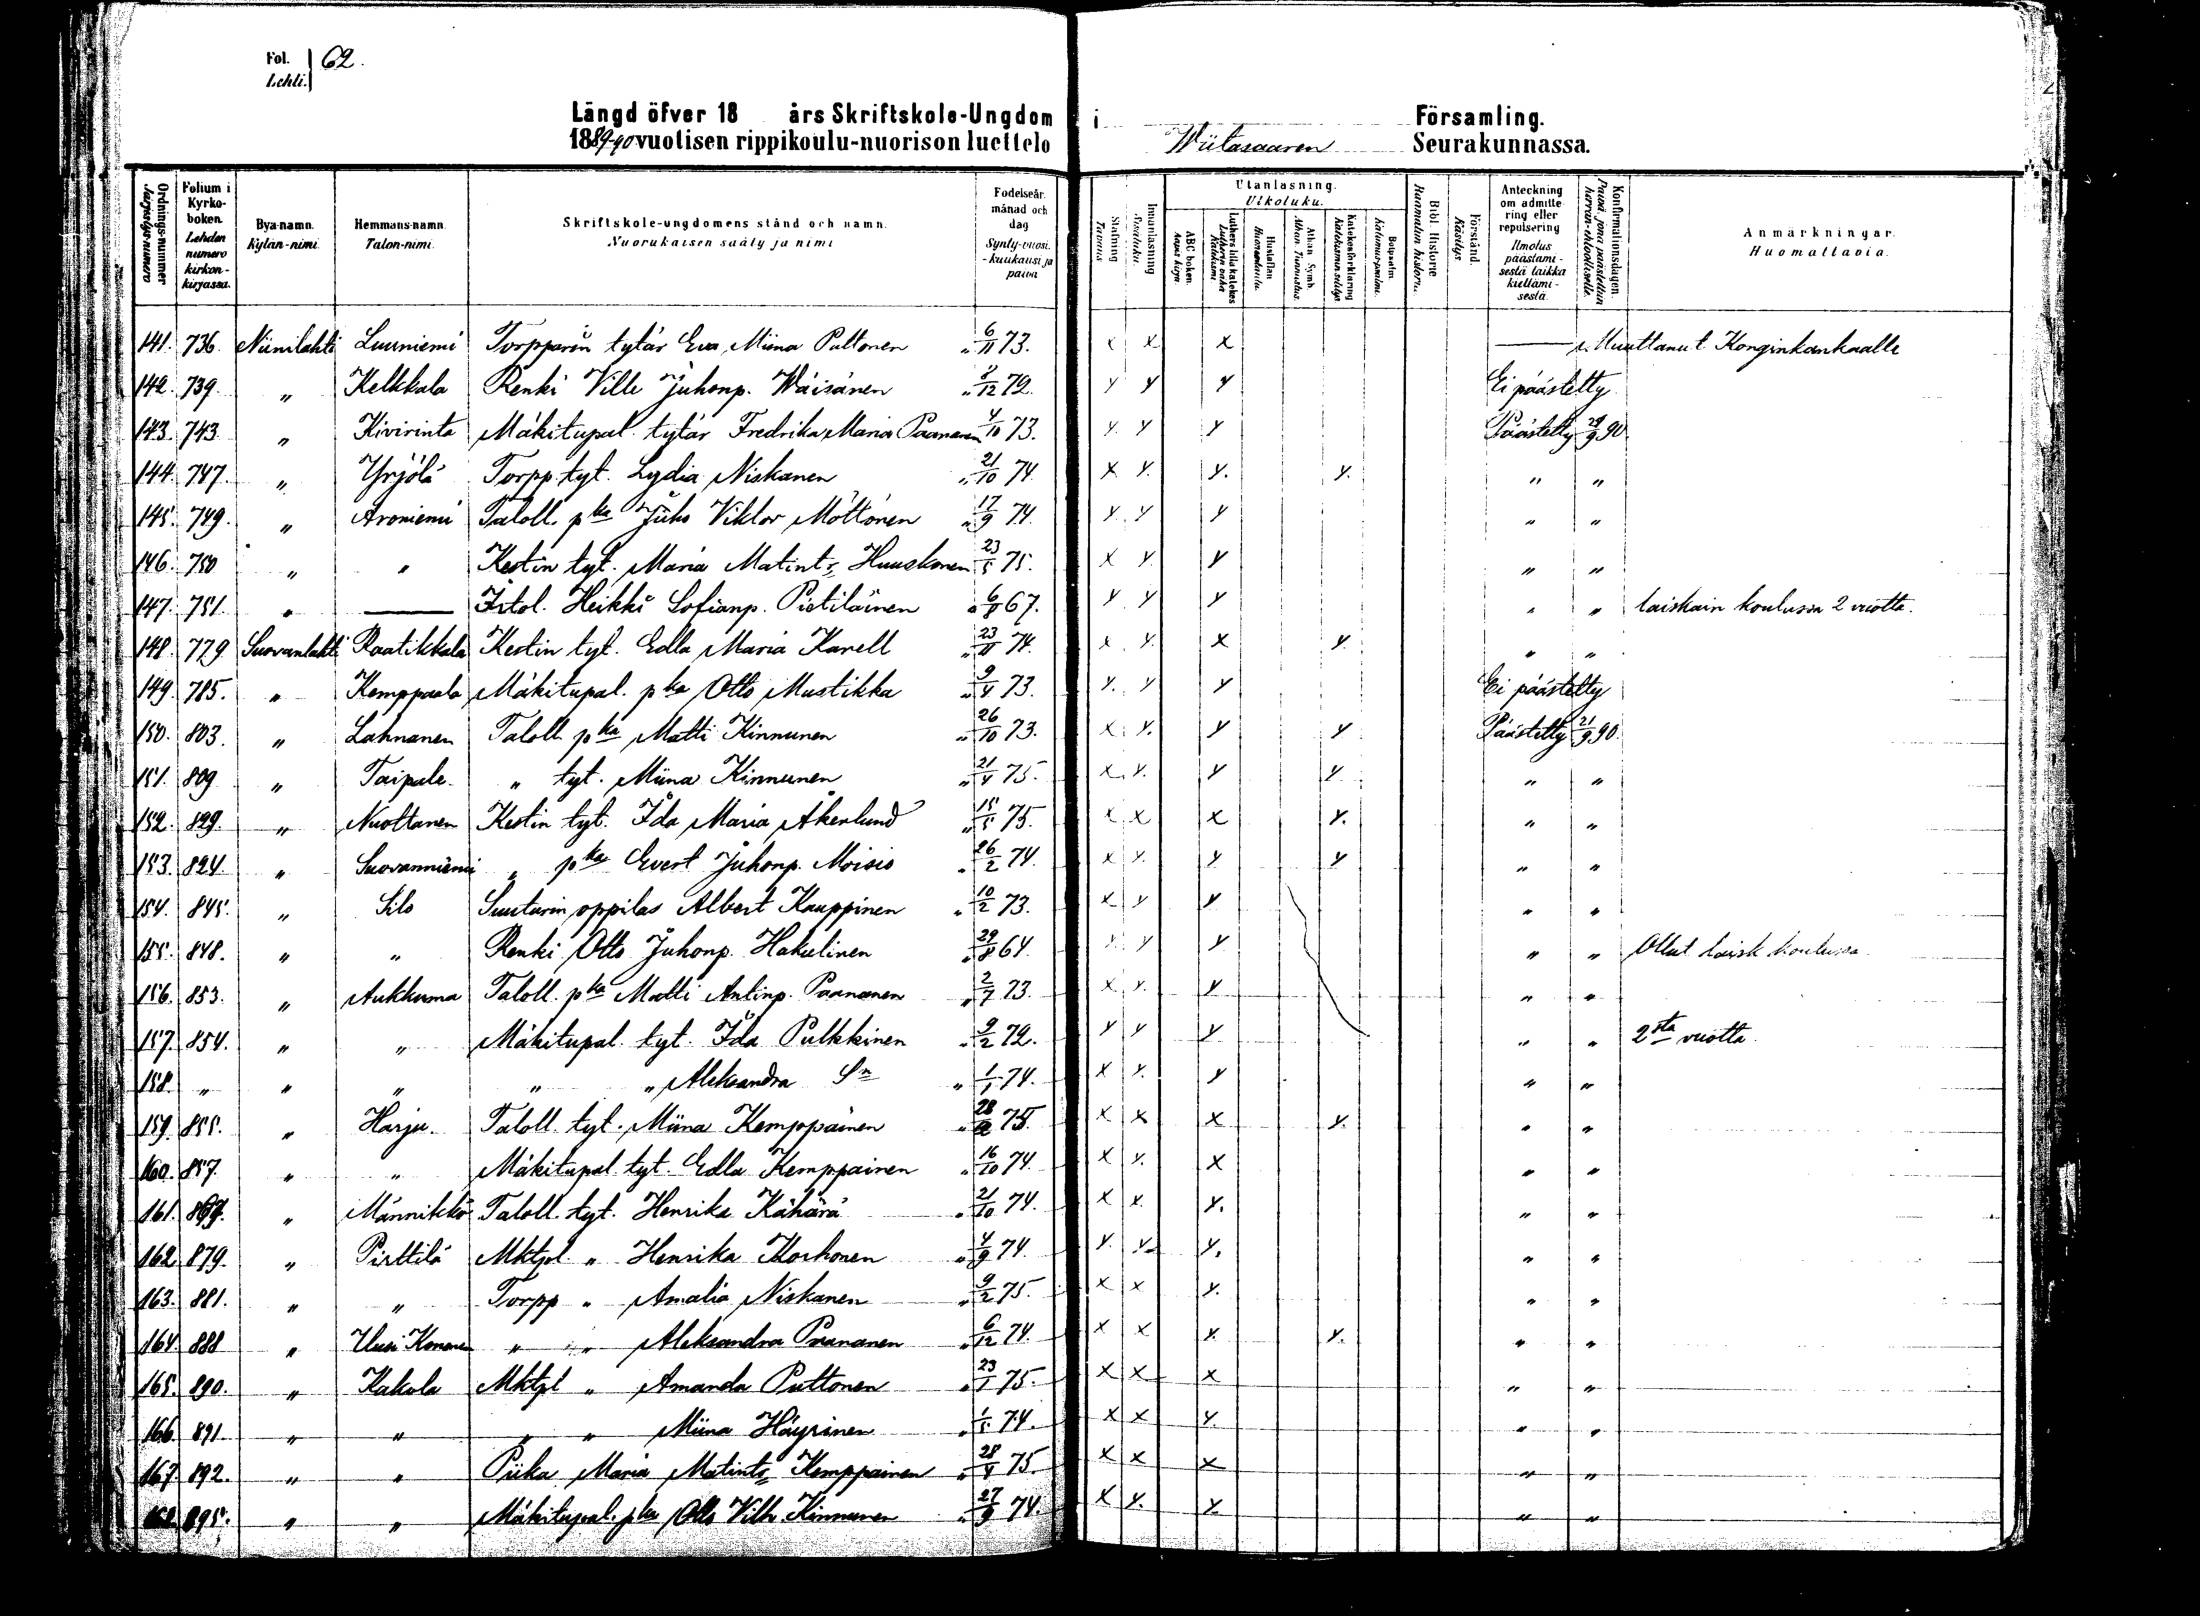 Fol. Lehti. 62.
Längd öfver 18 års Skriftskole-Ungdom i Församling.
1889-90 vuotisen rippikoulu-nuorison luettelo Wiitasaaren Seurakunnassa.
Ordnings-nummer Järjestys-numero
Folium i Kyrko-boken. Lehden numero kirkon-kirjassa.
Bya-namn. Kylän-nimi.
Hemmans-namn. Talon-nimi.
Skriftskole-ungdomens stånd och namn. Nuorukaisen sääty ja nimi
Födelseår. månad och dag Synty-vuosi. -kuukausi ja päivä
Stafning Tavuus
Innanläsning Sisäluku.
Utanläsning. Ulkoluku.
ABC boken. Aapis kirja.
Luthers lilla katekes Lutherin vähä Katekismi
Hustaflan Huoneentaulu.
Athan Symb. Athan. Tunnustus.
Katekesförklaring Katekismin selitys
Botpsalm. Katumus-psalmi.
Bibl. Historie Raamatun historia.
Förstånd. Käsitys
Anteckning om admittering eller repulsering Ilmotus päästämisestä taikka kieltämisestä.
Konfirmationsdagen. Päivä, jona päästettiin herran-ehtoolliselle.
Anmärkningar. Huomattavia.
141. 736. Niinilahti Luuniemi Torpparin tytär Eva Miina Puttonen " 6/11 73. x x x — Muuttanut Konginkankaalle
142. 739. " Kelkkala Renki Ville Juhonp. Wäisänen " /12 72. y y y Ei päästetty
143. 743. " Kivirinta Mäkitupal. tytär Fredrika Maria Paananen 4/10 73. y y y Päästetty 29/9 90
144. 747. " Yrjölä Torpp. tyt. Lydia Niskanen " 21/10 74 x y. y. y. " "
145. 749. " Aroniemi Taloll. pka Juho Viktor Möttönen " 17/9 74. y y y " "
146. 750 " " Kestin tyt. Maria Matint:r Huuskonen 23/5 75. x y y " "
147. 751. " — Itsel. Heikki Sofianp. Pietiläinen " 6/8 67. y y y " " laiskain koulussa 2 vuotta.
148. 779 Suovanlahti Raatikkala Kestin tyt. Edla Maria Karell " 23/11 74. x y. x y. " "
149. 785. " Kemppaala Mäkitupal. pka Otto Mustikka " 9/4 73. y. y y Ei päästetty
150. 803. " Lahnanen Taloll. pka Matti Kinnunen " 26/10 73. x y. y y Päästetty 21/9 90.
151. 809 " Taipale. " tyt. Miina Kinnunen " 21/4 75. x y. y y " "
152. 829. " Nuottanen Kestin tyt. Ida Maria Åkerlund " 15/5 75. x x x y. " "
153. 824. " Suovanniemi " pka Evert Juhonp. Moisio " 26/2 74. x y. y y " "
154. 845. " Silo Suutarin oppilas Albert Kauppinen " 10/2 73. x y y " "
155. 848. " " Renki Otto Juhonp. Hakulinen " 29/8 64. y y y " " Ollut laisk. koulussa
156. 853. " Aukkuma Taloll. pka Matti Antinp. Paananen " 2/7 73. x y. y " "
157. 854. " " Mäkitupal. tyt. Ida Pulkkinen " 9/2 72. y y y " " 2sta vuotta.
158. " " " " " Aleksandra Sn " 1/1 74. x y. y " "
159. 855. " Harju. Taloll. tyt. Miina Kemppainen " 28/12 75. x x x y. " "
160. 857. " " Mäkitupal. tyt. Edla Kemppainen " 16/10 74. x y. x " "
161. 869. " Männikkö Taloll. tyt. Henrika Kähärä " 21/10 74. x x. y. " "
162 879. " Pirttilä Mktpl " Henrika Korhonen " 4/9 74. y. y. y. " "
163. 881. " " Torpp " Amalia Niskanen " 9/2 75. x x y. " "
164. 888 " Uusi Kononen " " Aleksandra Paananen " 6/12 74. x x y. y. " "
165. 890. " Kakola Mktpl " Amanda Puttonen " 23/1 75. x x x " "
166. 891 " " " " Miina Häyrinen " 1/5 74. x x y. " "
167. 892. " " Piika Maria Matint:r Kemppainen " 28/4 75. x x x " "
168 895. " " Mäkitupal. pka Otto Vilh. Kinnunen " 27/9 74. x y. y. " "